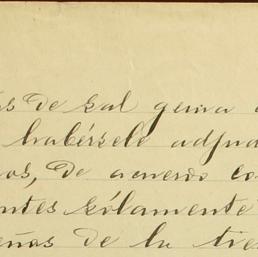 as de sal gema
habérsele adju
os, de acuerdo co
ntes sólamente
eñas de la tie